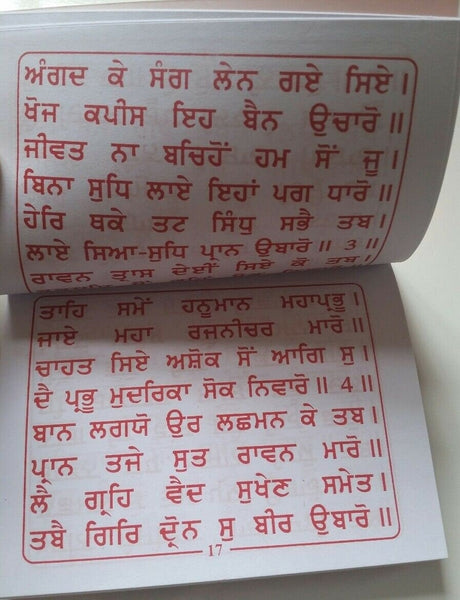 ਅੰਗਦ ਕੇ ਸੰਗ ਲੇਨ ਗਏ ਸਿਏ ।
ਖੋਜ ਕਪੀਸ ਇਹ ਬੈਨ ਉਚਾਰੋ ॥
ਜੀਵਤ ਨਾ ਬਚਿਹੋਂ ਹਮ ਸੋਂ ਜੂ ।
ਬਿਨਾ ਸੁਧਿ ਲਾਏ ਇਹਾਂ ਪਗ ਧਾਰੋ ॥
ਹੇਰਿ ਥਕੇ ਤਟ ਸਿੰਧੁ ਸਭੈ ਤਬ ।
ਲਾਏ ਸਿਆ-ਸੁਧਿ ਪ੍ਰਾਨ ਉਬਾਰੋ ॥ 3 ॥
ਰਾਵਨ ਤ੍ਰਾਸ ਦੇਈਂ ਸਿਏ ਕੋ ਤਬ ।
ਤਾਹਿ ਸਮੇਂ ਹਨੂਮਾਨ ਮਹਾਪ੍ਰਭੂ ।
ਜਾਏ ਮਹਾ ਰਜਨੀਚਰ ਮਾਰੋ ॥
ਚਾਹਤ ਸਿਏ ਅਸ਼ੋਕ ਸੋਂ ਆਗਿ ਸੁ ।
ਦੈ ਪ੍ਰਭੂ ਮੁਦਰਿਕਾ ਸੋਕ ਨਿਵਾਰੋ ॥ 4 ॥
ਬਾਨ ਲਗਯੋ ਉਰ ਲਛਮਨ ਕੇ ਤਬ ।
ਪ੍ਰਾਨ ਤਜੇ ਸੁਤ ਰਾਵਨ ਮਾਰੋ ॥
ਲੈ ਗ੍ਰਹਿ ਵੈਦ ਸੁਖੇਣ ਸਮੇਤ ।
ਤਬੈ ਗਿਰਿ ਦ੍ਰੋਨ ਸੁ ਬੀਰ ਉਬਾਰੋ ॥
17